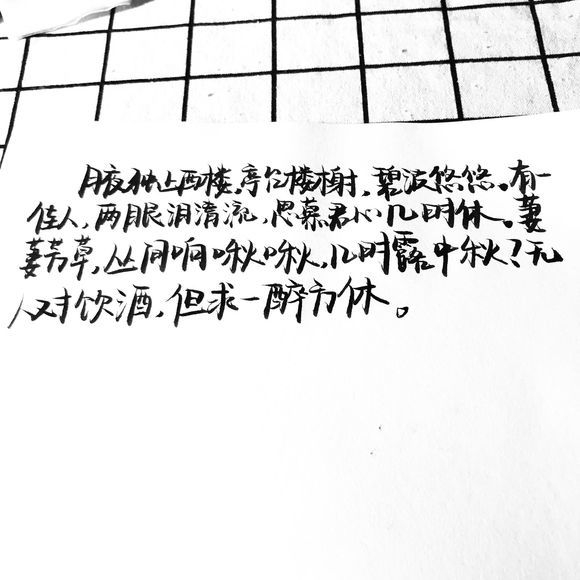 月夜独上西楼,亭台楼榭,碧波悠悠。有一
佳人,两眼泪清流,思慕君心几时休。萋
萋芳草,丛间响啾啾,几时露中秋?无
人对饮酒,但求一醉方休。